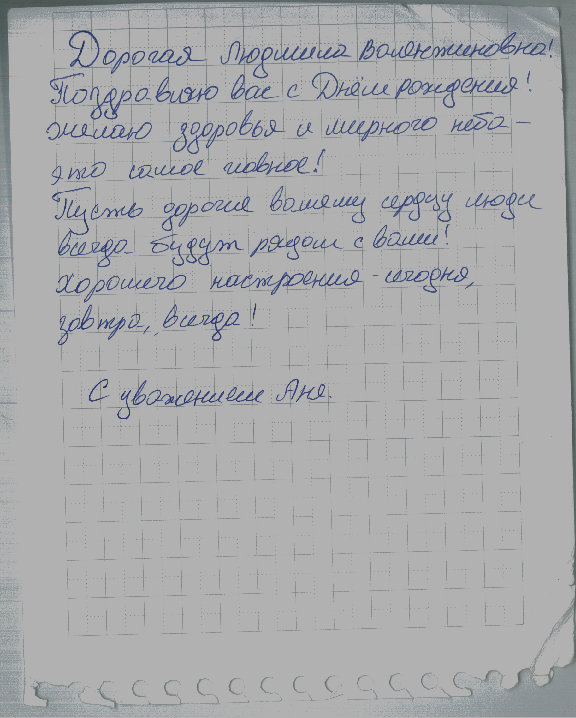 Дорогая Людмила Валентиновна!
Поздравляю вас с Днём рождения!
Желаю здоровья и мирного неба -
это самое главное!
Пусть дорогие вашему сердцу люди
всегда будут рядом с вами!
Хорошего настроения - сегодня,
завтра, всегда!
С уважением Аня.